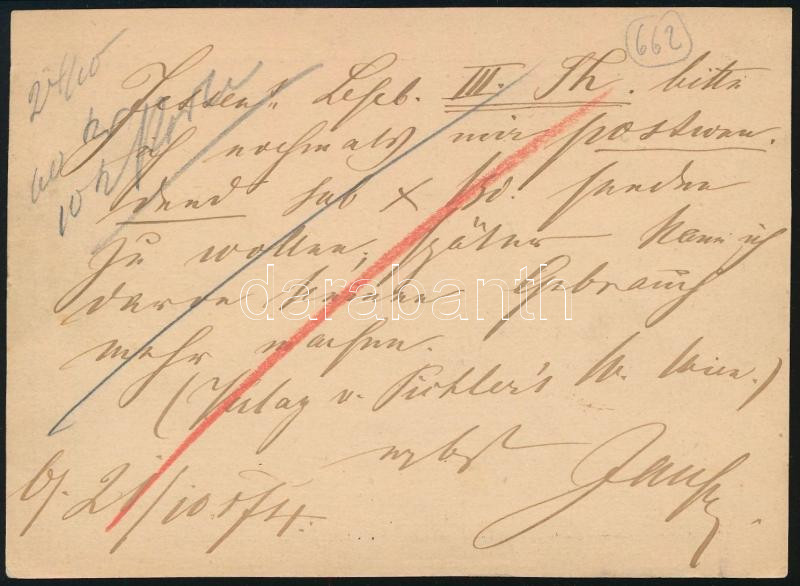 662
24/10
60 kr
10 kr Porto
Jessen's Leseb. III. Th. bitte
ich nochmals mir postwen.
dend sub x bd. senden
zu wollen; später kann ich
davon keinen Gebrauch
mehr machen.
(Verlag v. Pichler's W. Wien.)
darabanth
21/10